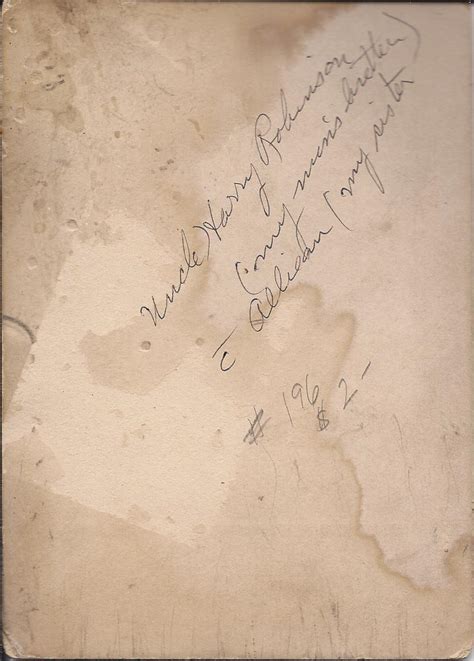 Uncle Harry Robinson
(my brother)
c̄ Allison (my sister
# 196
$ 2-